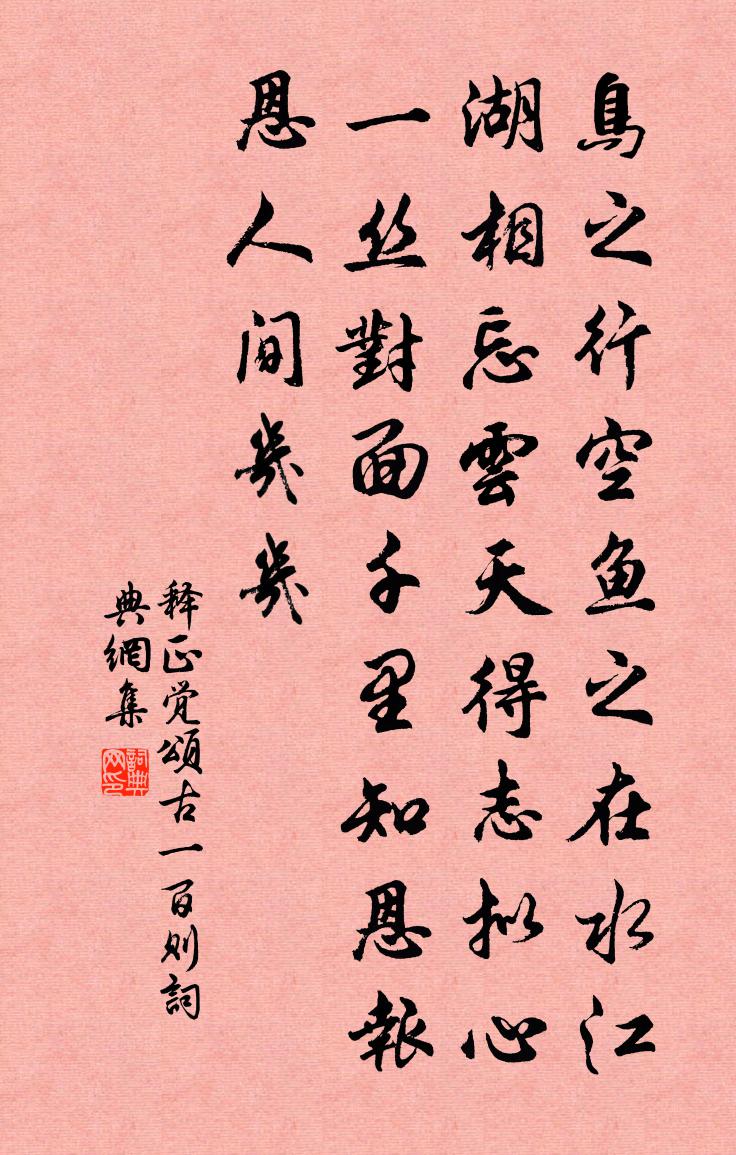 鳥之行空鱼之在水江
湖相忘雲天得志拟心
一丝對面千里知恩報
恩人间幾幾
释正觉頌古一百则詞
典網集
詞典网印